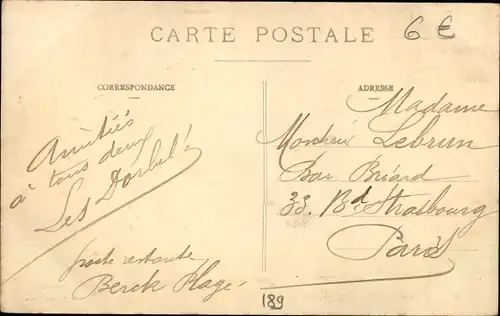 CARTE POSTALE
6 €
CORRESPONDANCE
Amitiés
à tous deux
Les Dorbel
poste restante
Berck Plage
ADRESSE
Madame
Monsieur Lebrun
Bar Briard
33. Bd Strasbourg
Paris
189